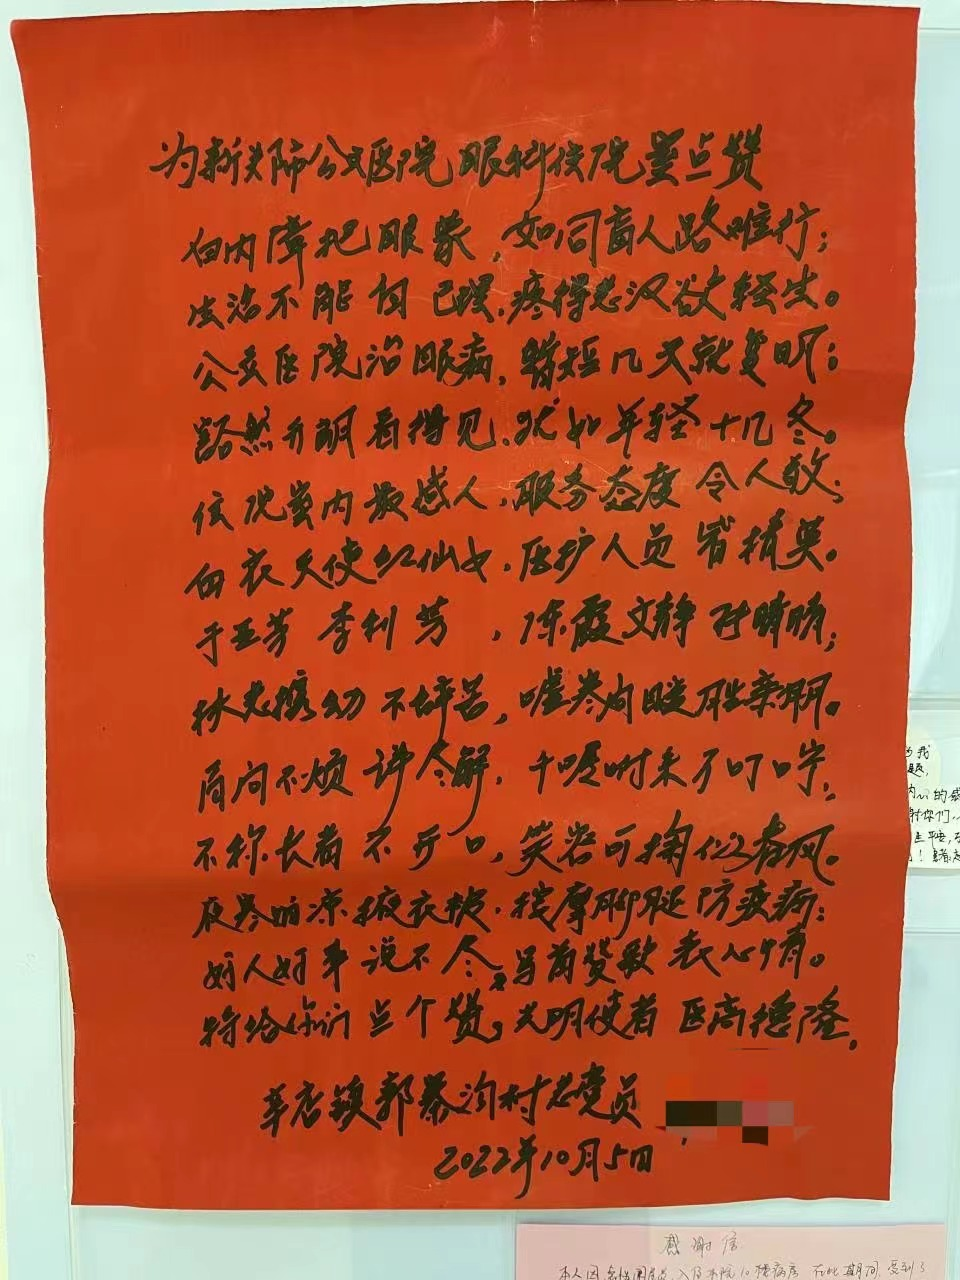 为新关师公立医院眼科住院室点赞
白内障把眼蒙，如同盲人路难行；
生活不能自己理，疼得老汉欲轻生。
公立医院治眼病，转短几天就复明；
豁然开朗看得见，犹如年轻十几冬。
住院室内最感人，服务态度令人敬；
白衣天使红仙女，医护人员皆精英。
于亚芳 李利芳，陈霞文静 晴晴；
扶老携幼不辞苦，嘘寒问暖胜亲朋。
百问不烦详尽解，千叮咛
不称长者不开口，笑容可掬似春风。
夜寒雨凉掖衣被，按摩脚腿防疾病；
好人好事说不尽，写首赞歌表心情。
特给你们点个赞，光明使者医高德隆。
辛店镇郭 沟村老党员
2022年10月5日
为我
题，
内心的感
谢你们，
生平安，
感谢信
本人因 入住本院10楼病房 在此期间 受到了